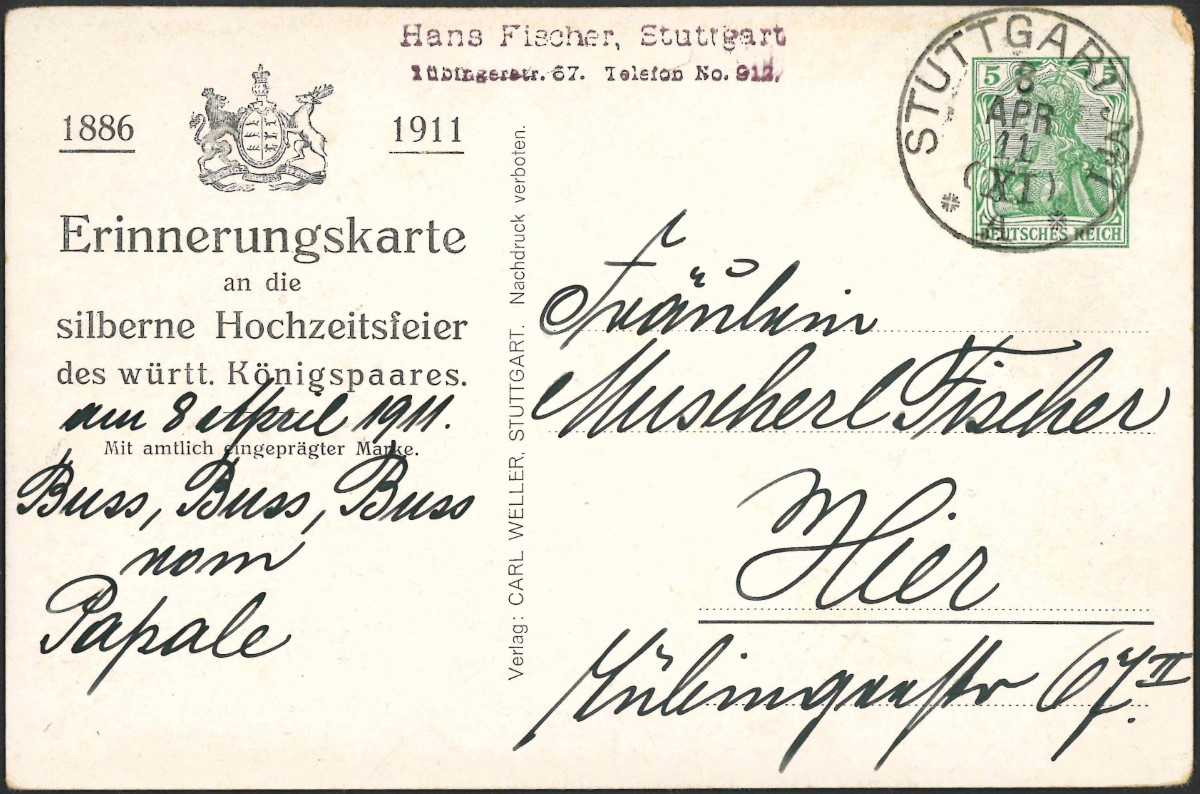 Hans Fischer, Stuttgart
Tübingerstr. 67. Telefon No. 912.
1886
1911
Erinnerungskarte
an die
silberne Hochzeitsfeier
des württ. Königspaares.
am 8 April 1911.
Mit amtlich eingeprägter Marke.
Buss, Buss, Buss
vom
Papale
Verlag: CARL WELLER, STUTTGART. Nachdruck verboten.
STUTTGART
8
APR
11
(XI)
5 5
DEUTSCHES REICH
Fräulein
Muscherl Fischer
Hier
Tübingerstr 67 II